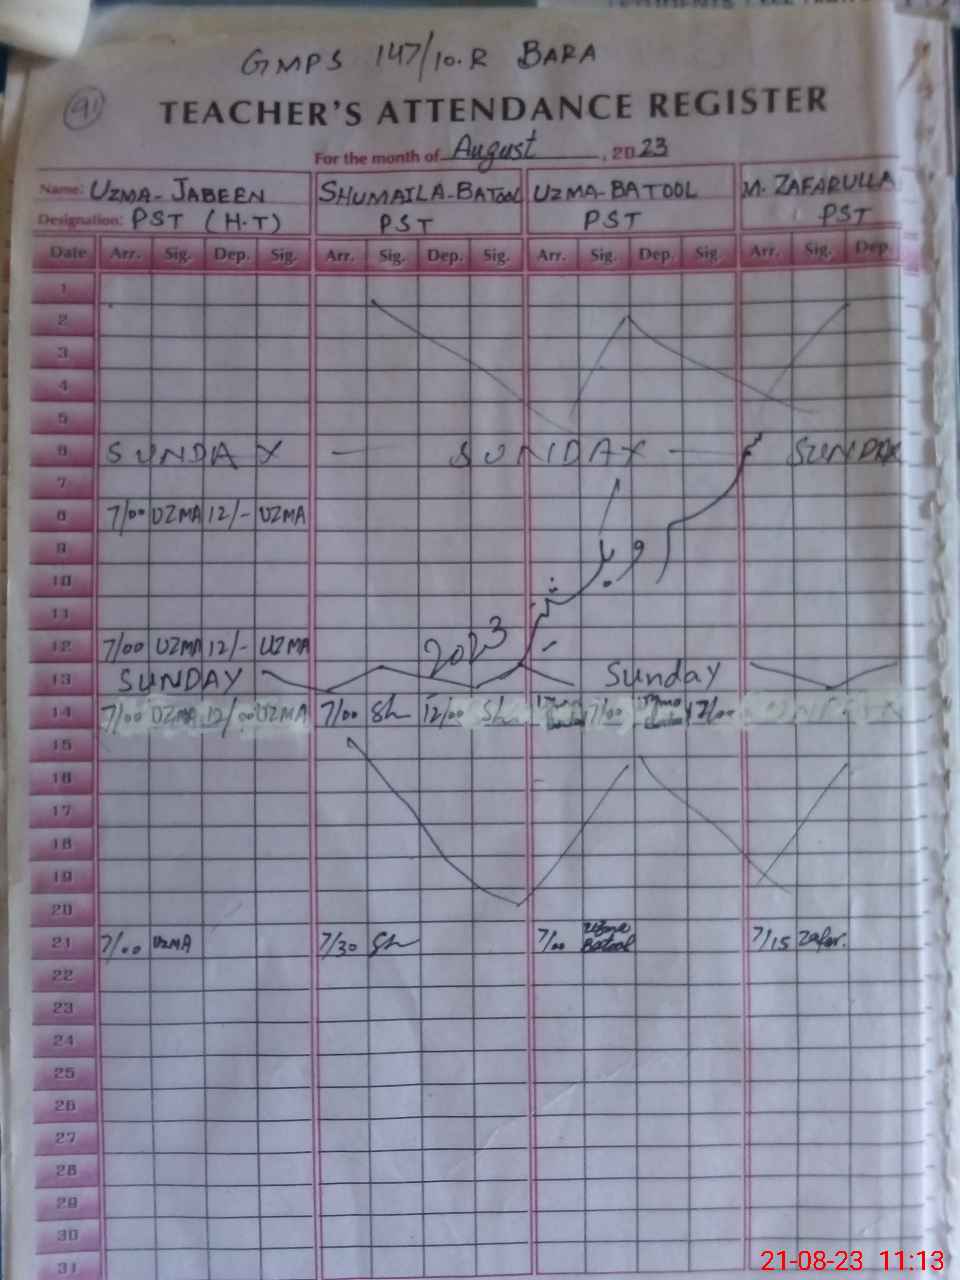 GMPS 147/10.R BARA
91
TEACHER'S ATTENDANCE REGISTER
For the month of August, 2023
Name: UZMA-JABEEN SHUMAILA-BATOOL UZMA-BATOOL M. ZAFARULLA
Designation: PST (H.T) PST PST PST
Date Arr. Sig. Dep. Sig. Arr. Sig. Dep. Sig. Arr. Sig. Dep. Sig. Arr. Sig. Dep.
1
2
3
4
5
6 SUNDAY SUNDAY SUNDAY
7
8 7/00 UZMA 12/- UZMA
9
10
11
12 7/00 UZMA 12/- UZMA 2023
13 SUNDAY Sunday
14 7/00 UZMA 12/00 UZMA 7/00 Sh 12/00 Sh 7/00 7/00
15
16
17
18
19
20
21 7/00 UZMA 7/30 Sh 7/00 Uzma Batool 7/15 Zafar.
22
23
24
25
26
27
28
29
30
31
21-08-23 11:13